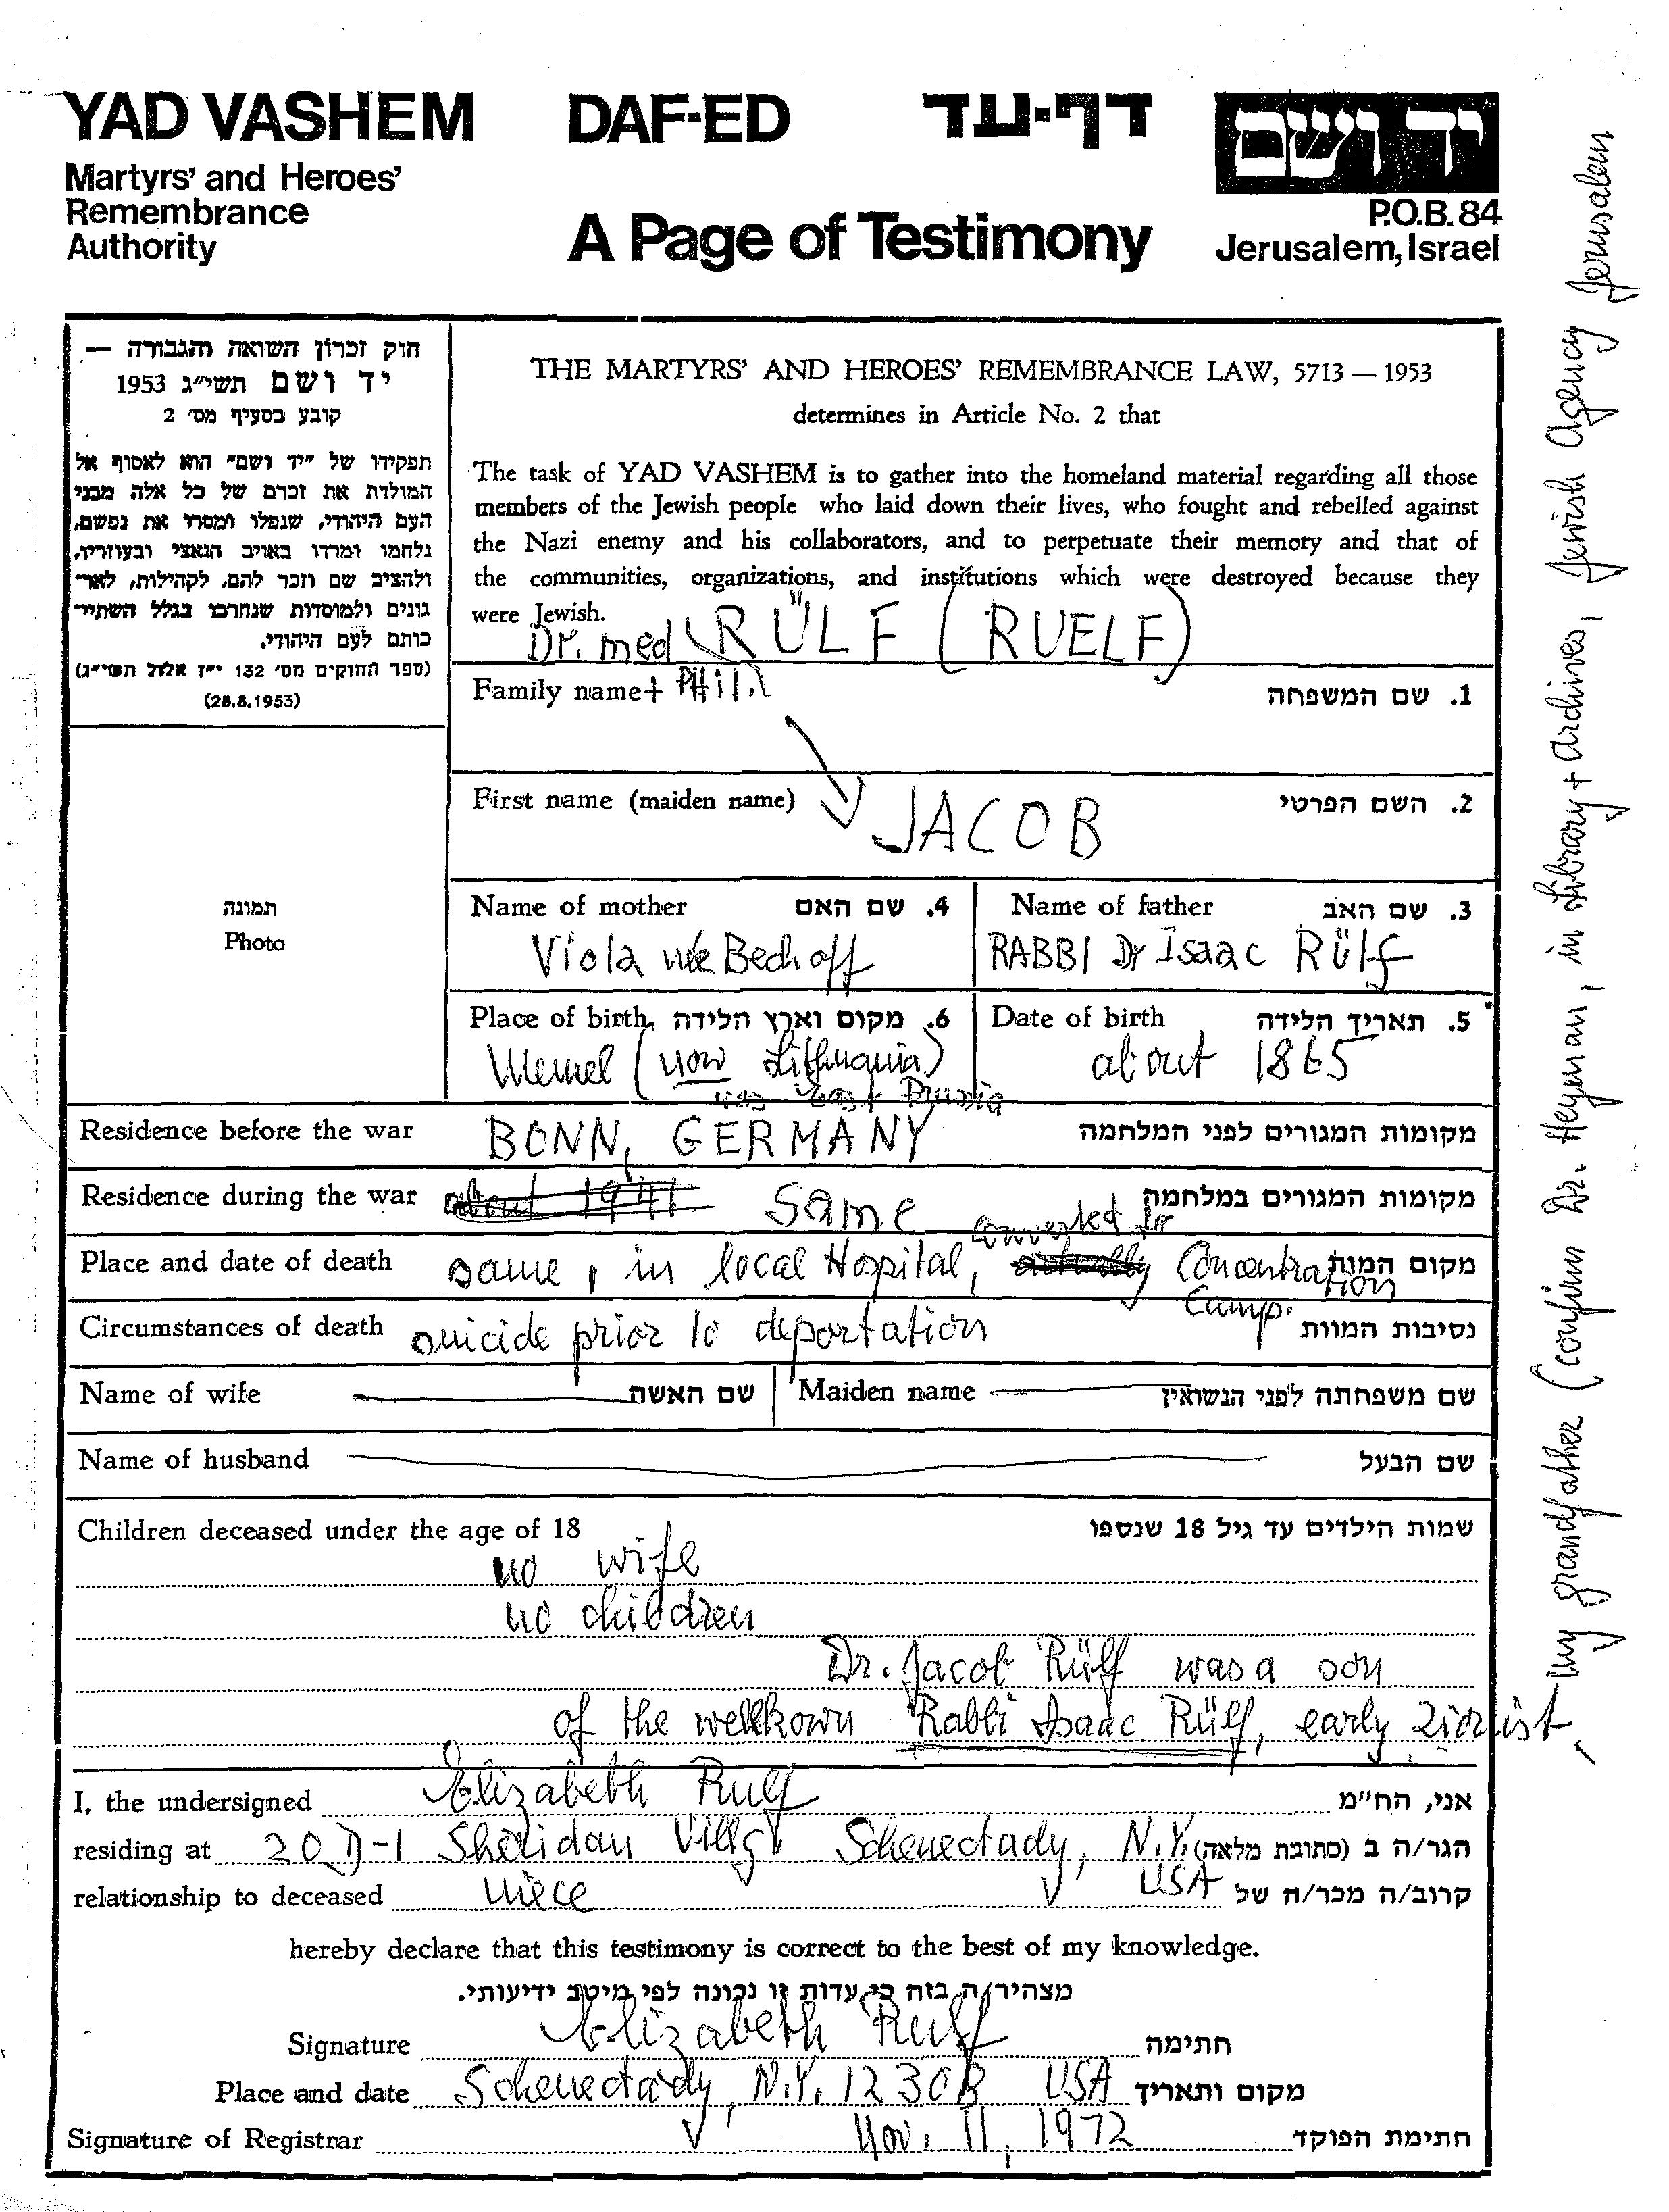 YAD VASHEM DAF-ED דף-עד יד ושם
Martyrs' and Heroes'
Remembrance
Authority
A Page of Testimony
P.O.B. 84
Jerusalem, Israel
חוק זכרון השואה והגבורה —
יד ושם תשי"ג 1953
קובע בסעיף מס' 2
תפקידו של "יד ושם" הוא לאסוף אל
המולדת את זכרם של כל אלה מבני
העם היהודי, שנפלו ומסרו את נפשם,
נלחמו ומרדו באויב הנאצי ובעוזריו,
ולהציב שם וזכר להם, לקהילות, לאר-
גונים ולמוסדות שנחרבו בגלל השתיי-
כותם לעם היהודי.
(ספר החוקים מס' 132 י"ז אלול תשי"ג)
(28.8.1953)
THE MARTYRS' AND HEROES' REMEMBRANCE LAW, 5713 — 1953
determines in Article No. 2 that
The task of YAD VASHEM is to gather into the homeland material regarding all those
members of the Jewish people who laid down their lives, who fought and rebelled against
the Nazi enemy and his collaborators, and to perpetuate their memory and that of
the communities, organizations, and institutions which were destroyed because they
were Jewish.
Dr. med RÜLF (RUELF)
Family name + PHil. 1. שם המשפחה
First name (maiden name) 2. השם הפרטי
JACOB
תמונה
Photo
Name of mother 4. שם האם Name of father 3. שם האב
Viola née Bechoff RABBI Dr Isaac Rülf
Place of birth 6. מקום וארץ הלידה Date of birth 5. תאריך הלידה
Memel (now Lithuania) about 1865
was East Prussia
Residence before the war BONN, GERMANY מקומות המגורים לפני המלחמה
Residence during the war about 1941 same מקומות המגורים במלחמה
converted to
Place and date of death same, in local Hospital, actually Concentration מקום המות
Camp.
Circumstances of death suicide prior to deportation נסיבות המוות
Name of wife שם האשה Maiden name שם משפחתה לפני הנשואין
Name of husband שם הבעל
Children deceased under the age of 18 שמות הילדים עד גיל 18 שנספו
no wife
no children
Dr. Jacob Rülf was a son
of the wellkown Rabbi Isaac Rülf, early Zionist,
my grandfather (confirm Dr. Heyman, in Library + Archives, Jewish Agency Jerusalem
I, the undersigned Elizabeth Rulf אני, הח"מ
residing at 20 D-1 Sheridan Villg. Schenectady, N.Y. הגר/ה ב (כתובת מלאה)
relationship to deceased niece USA קרוב/ה מכר/ה של
hereby declare that this testimony is correct to the best of my knowledge.
מצהיר/ה בזה כי עדות זו נכונה לפי מיטב ידיעותי.
Signature Elizabeth Rulf חתימה
Place and date Schenectady, N.Y. 12308 USA מקום ותאריך
Signature of Registrar Nov. 11, 1972 חתימת הפוקד